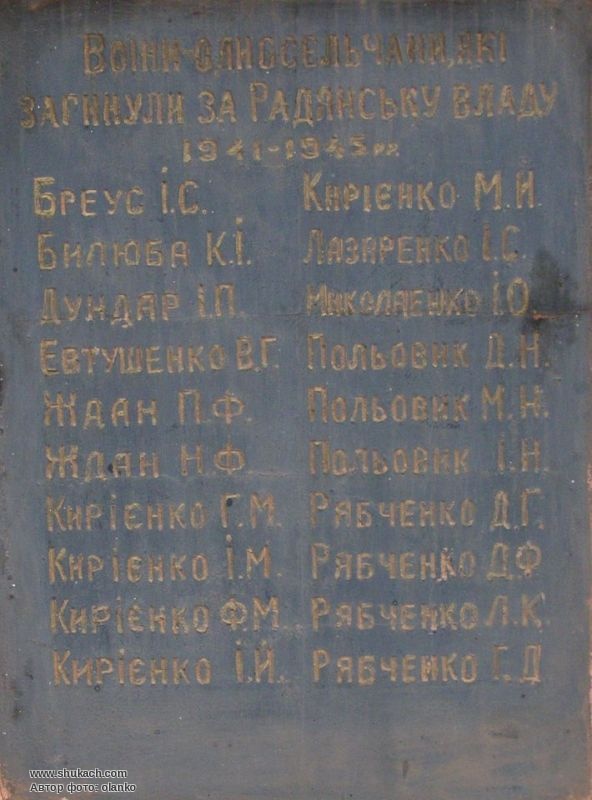 Воїни-односельчани, які
загинули за Радянську владу
1941-1945 рр
Бреус І.С.
Билюба К.І.
Дундар І.П.
Евтушенко В.Г.
Ждан П.Ф.
Ждан Н.Ф.
Кирієнко Г.М.
Кирієнко І.М.
Кирієнко Ф.М.
Кирієнко І.Й.
Кирієнко М.Й.
Лазаренко І.С.
Миколаенко І.О.
Польовик Д.Н.
Польовик М.Н.
Польовик І.Н.
Рябченко Д.Г.
Рябченко Д.Ф
Рябченко Л.К.
Рябченко Г.Д
www.shukach.com
Автор фото: olanko